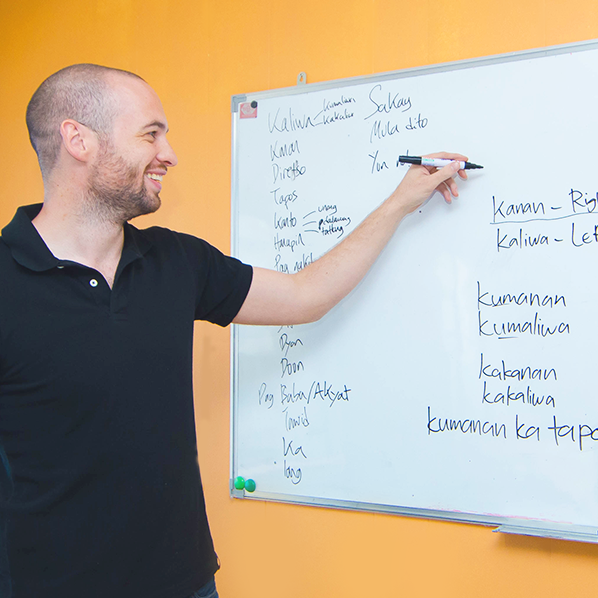 Kaliwa kumaliwa
kakaliwa
Kanan
Diretso
Tapos
Kanto unang
pangalawang
tatlong
Harapin
Pag
Dyan
Doon
Pag Baba/Akyat
Tawid
Ka
lang
Sakay
Mula dito
Yun
Kanan - Righ
Kaliwa - Lef
kumanan
kumaliwa
kakanan
kakaliwa
kumanan ka tapo